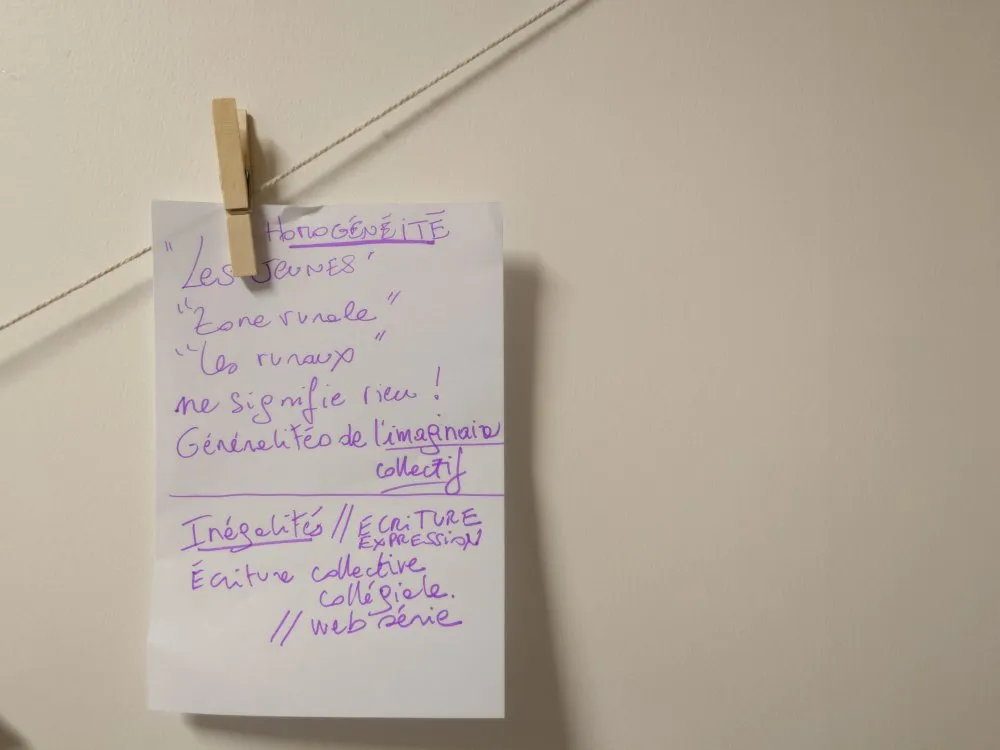 HOMOGÉNÉITÉ
"Les JEUNES"
"Zone rurale"
"Les ruraux"
ne signifie rien !
Généralités de l'imaginaire
collectif
Inégalités // ÉCRITURE
EXPRESSION
Écriture collective
collégiale.
// web série